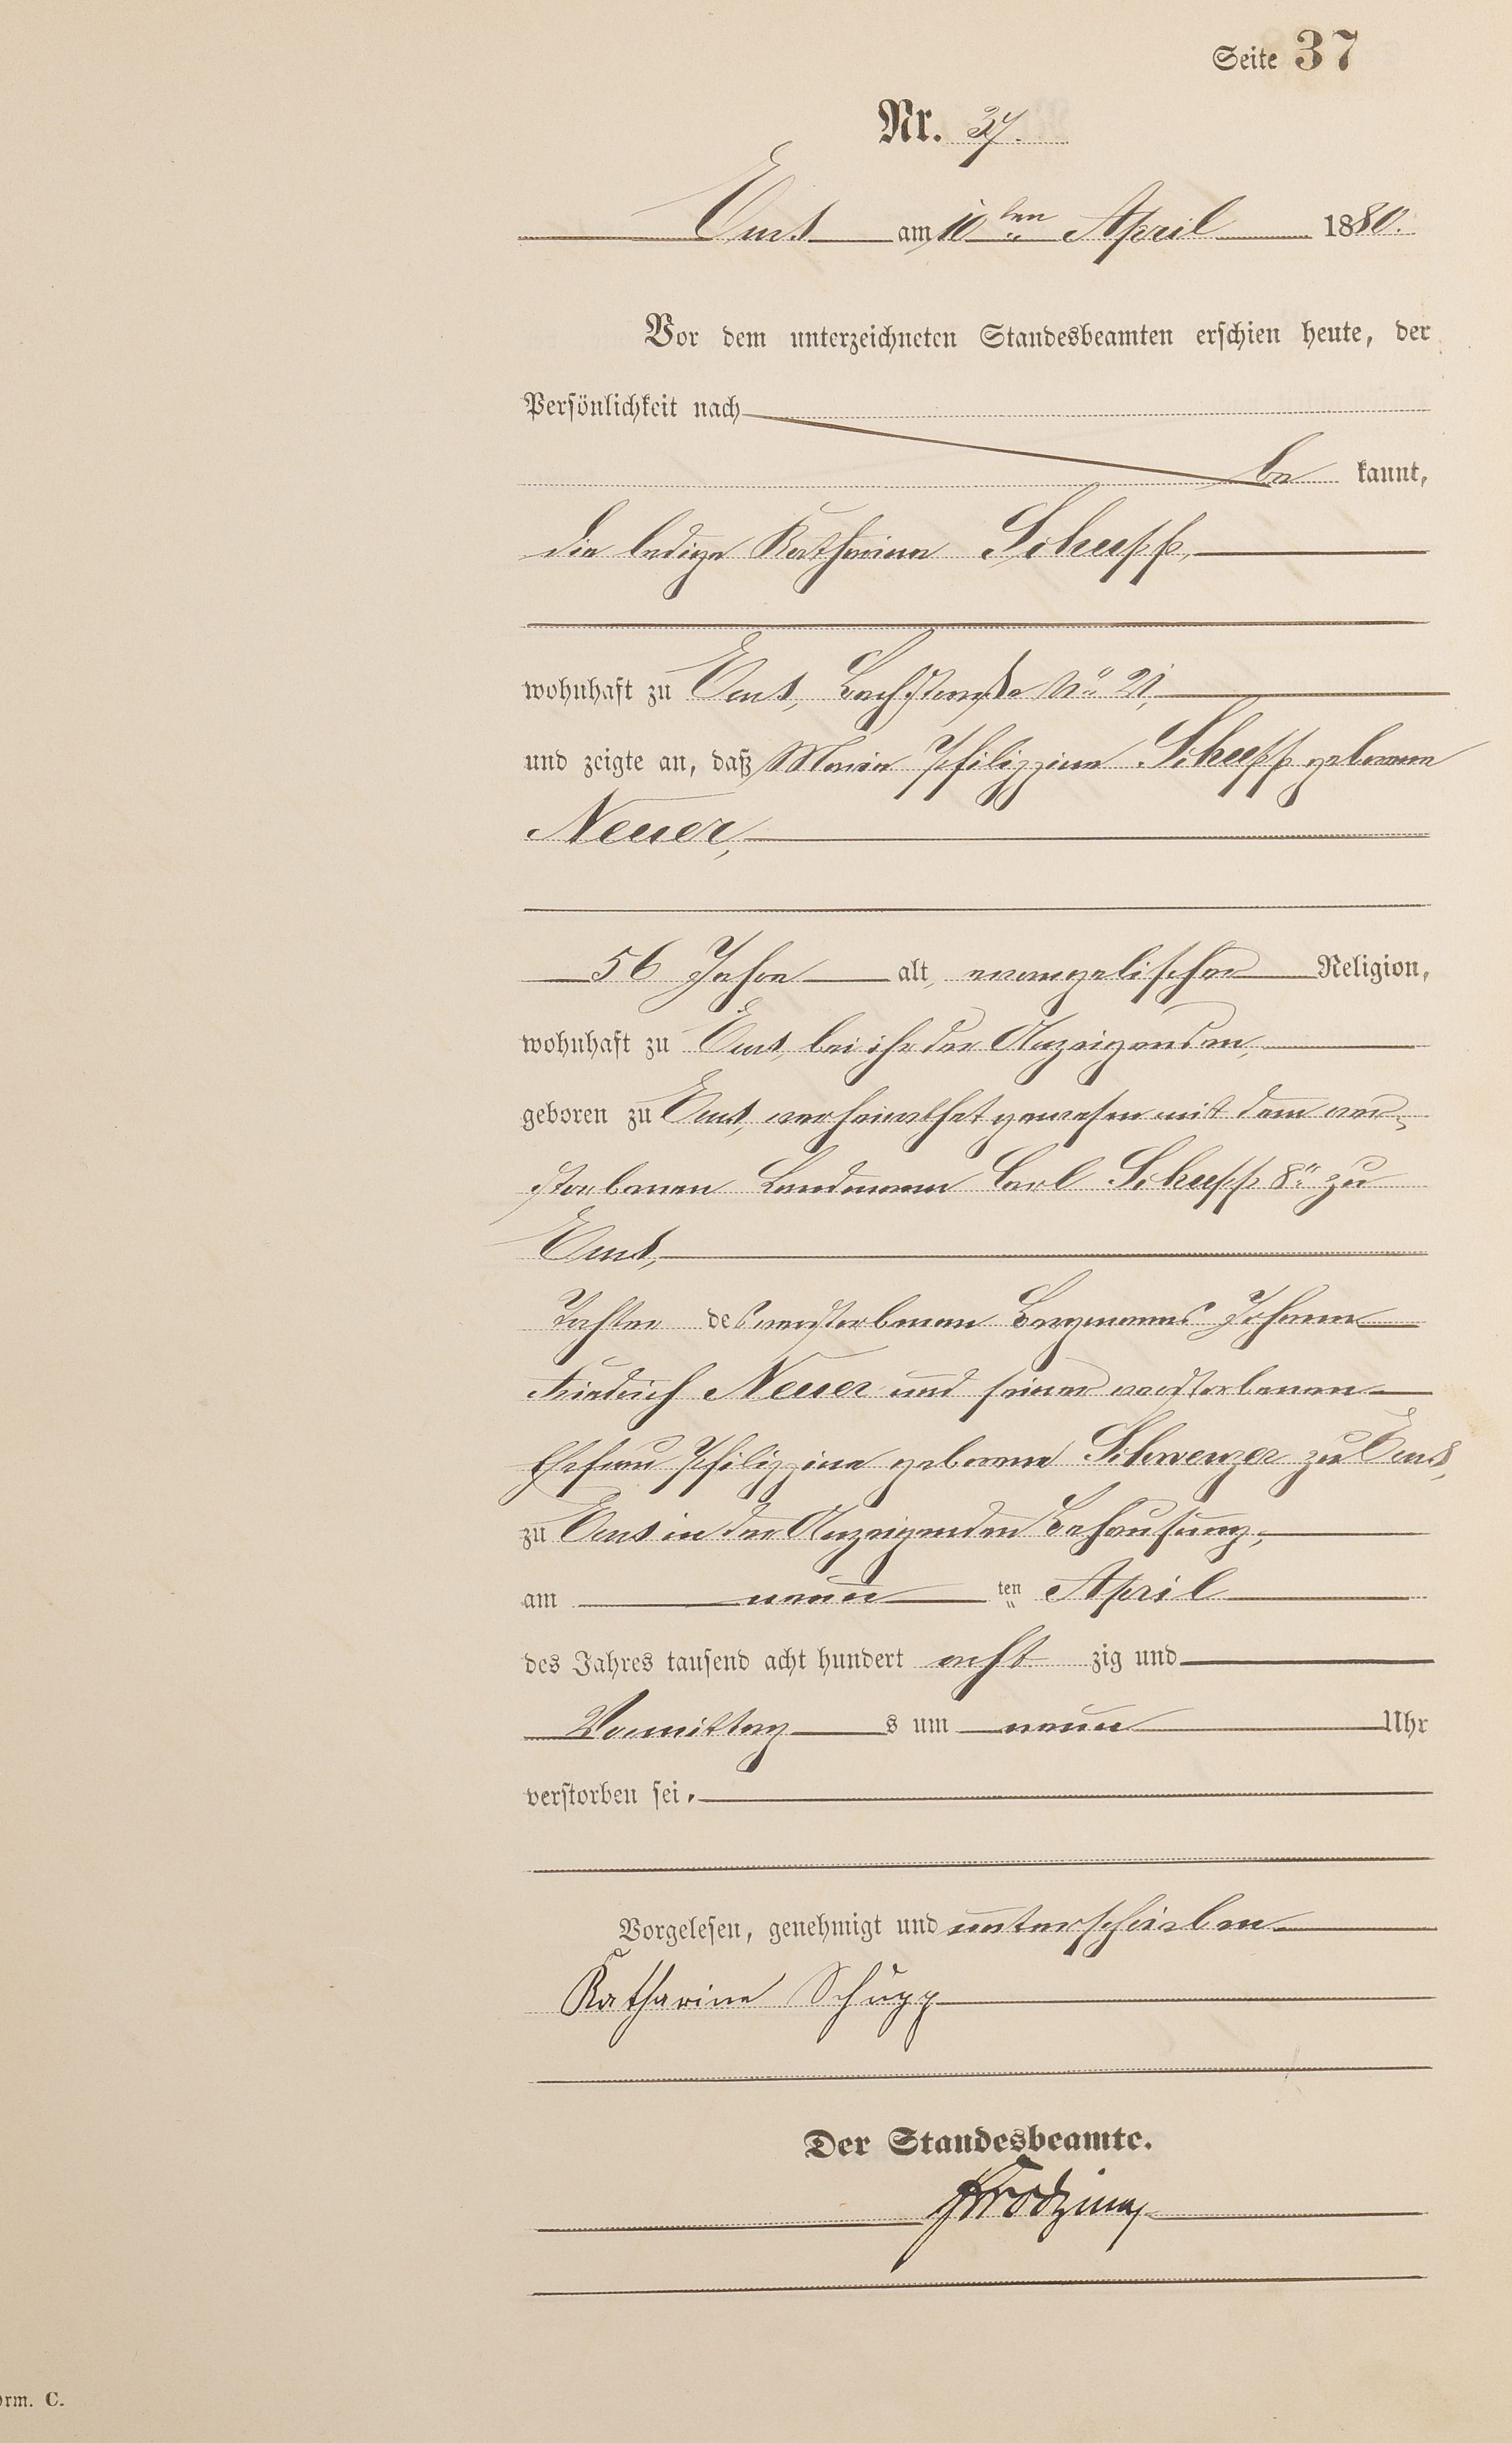 Seite 37
Nr. 37.
Ems am 10ten April 1880.
Vor dem unterzeichneten Standesbeamten erschien heute, der
Persönlichkeit nach
be kannt,
die ledige Katharina Schupp,
wohnhaft zu Ems, Bachstraße No 21,
und zeigte an, daß Maria Philippina Schupp geborene
Neuer,
56 Jahre alt, evangelischer Religion,
wohnhaft zu Ems, bei ihr der Anzeigenden,
geboren zu Ems, verheirathet gewesen mit dem ver-
storbenen Landmann Carl Schupp 8r zu
Ems,
Tochter des verstorbenen Bergmanns Johann
Friedrich Neuer und seiner verstorbenen
Ehefrau Philippina geborene Schwenzer zu Ems,
zu Ems in der Anzeigenden Behausung,
am neun ten April
des Jahres tausend acht hundert acht zig und
Vormittag s um neun Uhr
verstorben sei.
Vorgelesen, genehmigt und unterschrieben
Katharine Schupp
Der Standesbeamte.
orm. C.